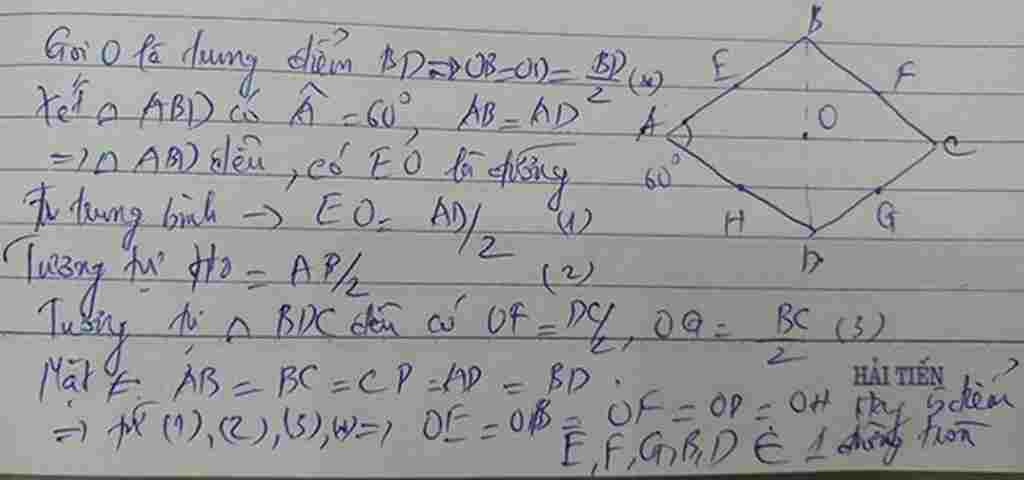 Gọi O là trung điểm BD => OB = OD = BD/2 (*)
Xét △ ABD có Â = 60°, AB = AD
=> △ ABD đều, có EO là đường
trung bình → EO = AD/2 (1)
Tương tự HO = AB/2 (2)
Tương tự △ BDC đều có OF = DC/2, OG = BC/2 (3)
Mặt ≠ AB = BC = CD = AD = BD
=> từ (1), (2), (3), (*) => OE = OB = OF = OD = OH Vậy 5 điểm
E, F, G, B, D ∈ 1 đường tròn
HẢI TIẾN
B
E
F
A
O
C
60°
H
G
D